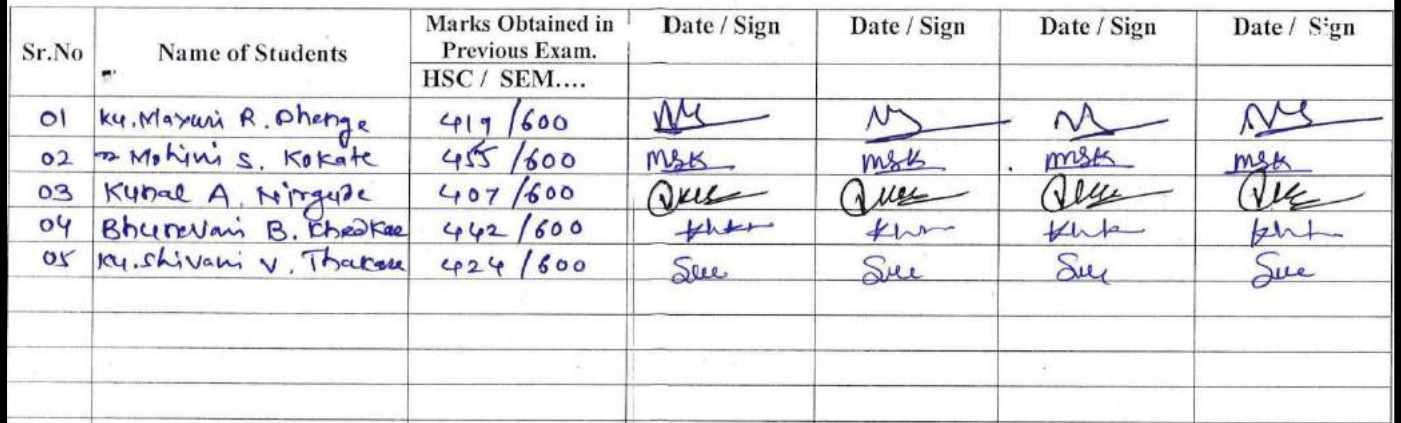 Sr.No Name of Students Marks Obtained in Previous Exam. Date / Sign Date / Sign Date / Sign Date / Sign
HSC / SEM....
01 Ku. Mayuri R. Dhenge 419/600
02 " Mohini S. Kokate 455/600 MSK MSK MSK MSK
03 Kunal A. Nirgude 407/600
04 B. 442/600
05 Ku. Shivani V. Thakare 424/600